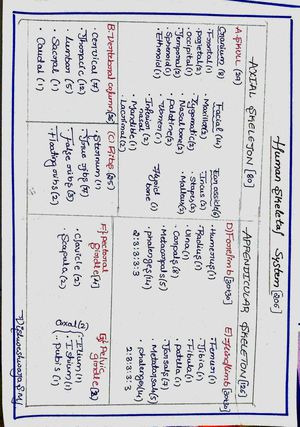 Human Skeletal System [206]
AXIAL SKELETON [80]
A) SKULL (29)
Cranium (8)
• Frontal (1)
• Parietal (2)
• occipital (1)
• Temporal (2)
• Sphenoid (1)
• Ethmoid (1)
Facial (14)
• Maxilla (2)
• Zygomatic (2)
• Nasal bone (2)
• Palatine (2)
• Vomer (1)
• Inferior (2)
nasal
• Mandible (1)
• Lacrimal (2)
Ear ossicles (6)
• Incus (2)
• Stapes (2)
• Malleus (2)
Hyoid (1)
bone
B. Vertebral column (26)
• Cervical (7)
• Thoracic (12)
• Lumbar (5)
• Sacral (1)
• Caudal (1)
(C) Ribs (25)
• Sternum (1)
• True ribs (7)
• False ribs (3)
• Floating ribs (2)
APPENDICULAR SKELETON [126]
D) Forelimb [30x2]
• Humerus (1)
• Radius (1)
• Ulna (1)
• Carpals (8)
• Metacarpals (5)
• phalanges (14)
2:3:3:3:3
E) Hindlimb [30x2]
• Femur (1)
• Tibia (1)
• Fibula (1)
• Patella (1)
• Tarsals (7)
• Metatarsals (5)
• phalanges (14)
2:3:3:3:3
F) Pectoral
girdle (4)
• Clavicle (2)
• Scapula (2)
G) Pelvic
girdle (2)
Coxal (2)
• Ilium (1)
• Ischium (1)
• Pubis (1)